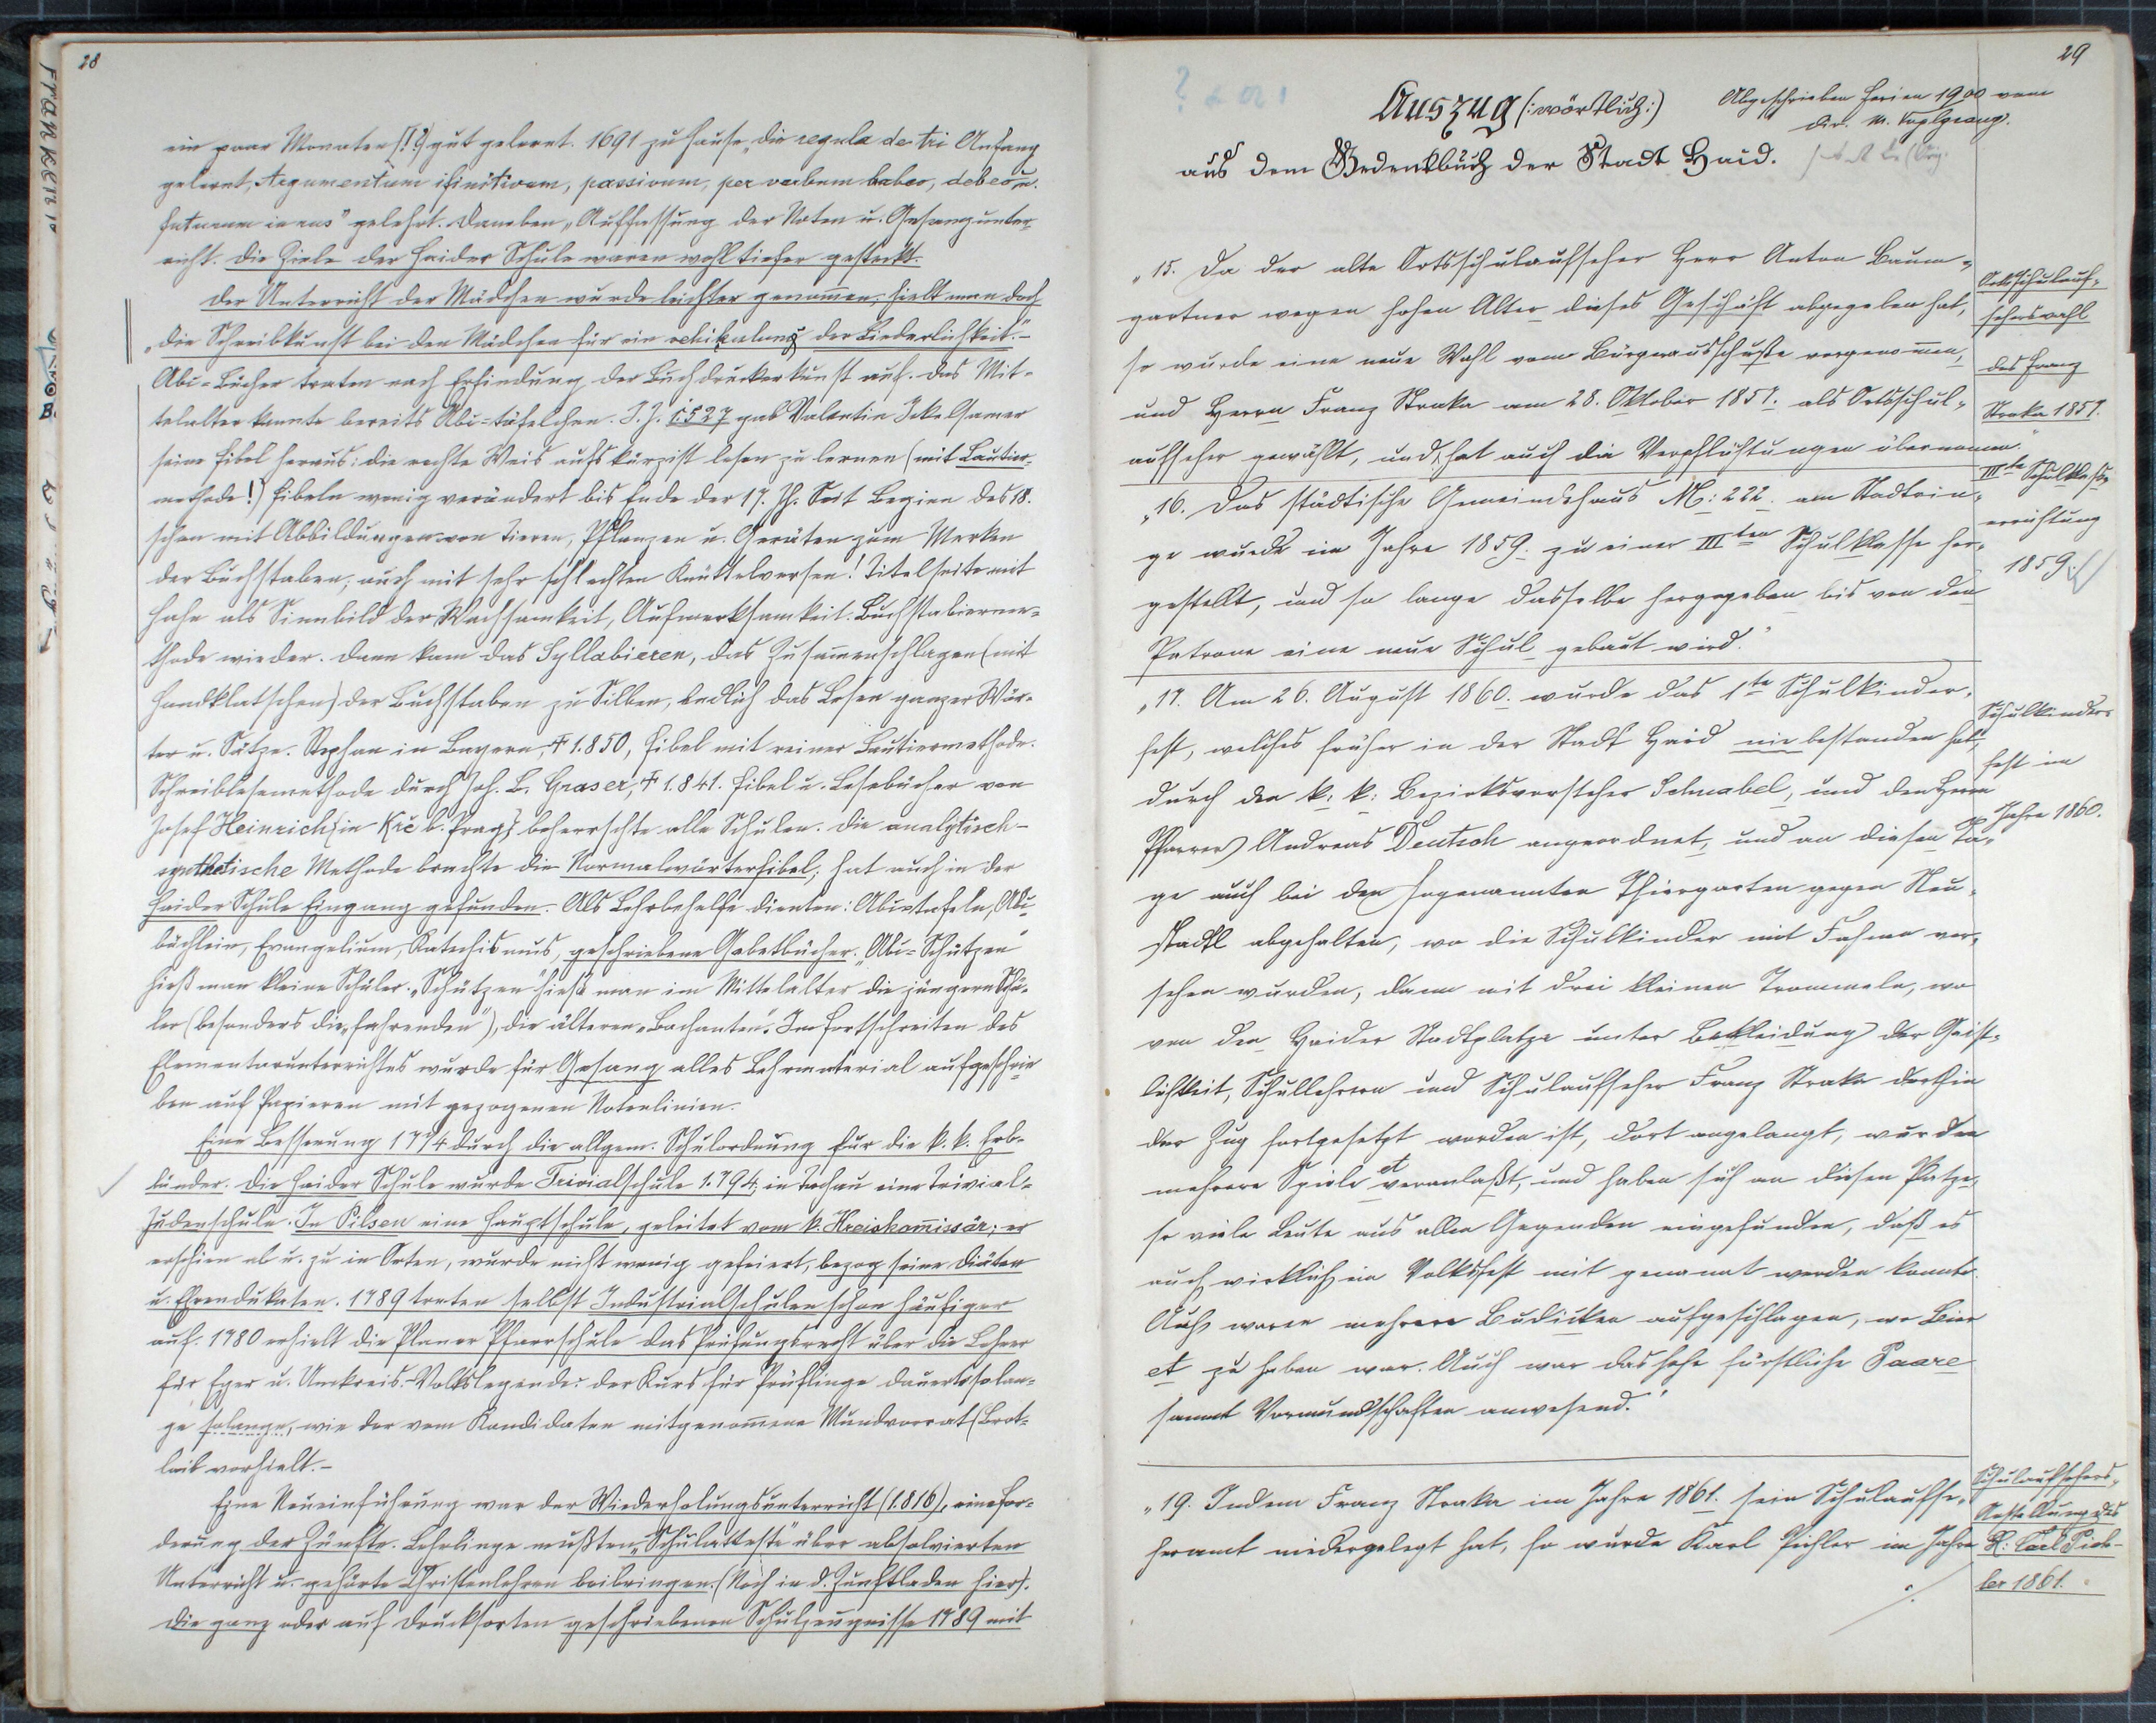 28
ein paar Monaten (!?) gut gelernt. 1691 zu Hause „die regula de tri Anfang
gelernt, Argumentum ifinitivum, passivum, per verbum habeo, debeo u.
futurum in rus" gelehrt. Daneben „Auffassung der Noten u. Gesangunter-
richt. Die Ziele der Haider Schule waren wohl tiefer gesteckt.
Der Unterricht der Mädchen wurde leichter genommen, hielt man doch
„die Schreibkunst bei den Mädchen für ein vehikulum der Liederlichkeit."-
Abc-Bücher traten nach Erfindung der Buchdruckerkunst auf. Das Mit-
telalter kannte bereits Abc-täfelchen. I. J. 1527 gab Valentin Ickelsamer
seine Fibel heraus: die rechte Weis aufs kürzist lesen zu lernen (mit Lautier-
methode!) Fibeln wenig verändert bis Ende der 17. Jh. Seit Beginn des 18.
schon mit Abbildungen von Tieren, Pflanzen u. Geräten zum Merken
der Buchstaben, auch mit sehr schlechten Knüttelversen! Titelseite mit
Hahn als Sinnbild der Wachsamkeit, Aufmerksamkeit. Buchstabierme-
thode wieder. Dann kam das Syllabieren, das Zusammenschlagen (mit
Handklatschen) der Buchstaben zu Silben, endlich das Lesen ganzer Wör-
ter u. Sätze. Stephan in Bayern, † 1850, Fibel mit reiner Lautiermethode.
Schreiblesemethode durch Joh. B. Graser, † 1841. Fibel u. Lesebücher von
Josef Heinrich (in Krč b. Prag) beherrschte alle Schulen. Die analytisch-
synthetische Methode brachte die Normalwörterfibel, hat auch in der
Haider Schule Eingang gefunden. Als Lehrbehelfe dienten: Abc-tafeln, Abc-
büchlein, Evangelium, Katechismus, geschriebene Gebetbücher. „Abc-Schützen"
hieß man kleine Schüler. „Schützen" hieß man im Mittelalter die jüngern Schü-
ler (besonders die „fahrenden"), die älteren „Bachanten". Im Fortschreiten des
Elementarunterrichtes wurde für Gesang alles Lehrmaterial aufgeschrie-
ben auf Papieren mit gezogenen Notenlinien.
Eine Besserung 1774 durch die allgem. Schulordnung für die k. k. Erb-
länder. Die Haider Schule wurde Trivialschule 1794, in Tachau eine Trivial-
Judenschule. In Pilsen eine Hauptschule, geleitet vom k. Kreiskommissär; er
erschien ab u. zu in Orten, wurde nicht wenig gefeiert, bezog seine Diäten
u. Ehrendukaten. 1789 treten selbst Industrialschulen schon häufiger
auf. 1780 erhielt die Planer Pfarrschule das Prüfungsrecht über die Lehrer
für Eger u. Umkreis. - Volkslegende: der Kurs für Prüflinge dauerte solan-
ge solange, wie der vom Kandidaten mitgenommene Mundvorrat (Brot-
laib vorhielt.-
Eine Neueinführung war der Wiederholungsunterricht (1816), eine For-
derung der Zünfte. Lehrlinge mußten „Schulatteste" über absolvierten
Unterricht u. gehörte Christenlehren beibringen. (Noch in d. Zunftladen hier).
Die ganz oder auf Drucksorten geschriebenen Schulzeugnisse 1789 mit
29
Auszug (: wörtlich :)
Abgeschrieben Ferien 1900 vom
Dir. M.
aus dem Gedenkbuch der Stadt Haid.
„15. Da der alte Ortsschulaufseher Herr Anton Baum-
gartner wegen hohen Alter dieses Geschäft abgegeben hat,
so wurde eine neue Wahl vom Bürgerausschuße vorgenommen,
und Herrn Franz Straka am 28. Oktober 1857. als Ortsschul-
aufseher gewählt, und hat auch die Verpflichtungen übernommen."
Ortsschulauf-
seherswahl
des Franz
Straka 1857.
„16. Das städtische Gemeindehaus N: 222. am Stadtrin-
ge wurde im Jahre 1859. zu einer IIIten Schulklasse her-
gestellt, und so lange dasselbe hergegeben bis von den
Patrone eine neue Schul gebaut wird."
IIIte Schulklasse-
errichtung
1859.
„17. Am 26. August 1860. wurde das 1te Schulkinder-
fest, welches früher in der Stadt Haid nie bestanden hat,
durch den k. k: Bezirksvorsteher Schnabel, und den Herrn
Pfarrer Andreas Deutsch angeordnet, und an diesen Ta-
ge auch bei den sogenannten Thiergarten gegen Neu-
stadtl abgehalten, wo die Schulkinder mit Fahnen ver-
sehen wurden, dann mit drei kleinen Trommeln, wo
von den Haider Stadtplatze unter Bekleidung der Geist-
lichkeit, Schullehrern und Schulaufseher Franz Straka dorthin
der Zug fortgesetzt worden ist, dort angelangt, wurden
mehrere Spiele et veranlaßt, und haben sich an diesen Platze,
so viele Leute aus allen Gegenden eingefunden, daß es
auch wirklich ein Volksfest mit genannt werden konnte.
Auch waren mehrere Budicken aufgeschlagen, wo Bier
et zu haben war. Auch war das hohe fürstliche Paare
sammt Vormundschaften anwesend."
Schulkinder-
fest im
Jahre 1860.
„19. Indem Franz Straka im Jahre 1861. sein Schulaufse-
heramt niedergelegt hat, so wurde Karl Pichler im Jahre
Schulaufsehers-
Anstellung des
H: Carl Pich-
ler 1861.
./.